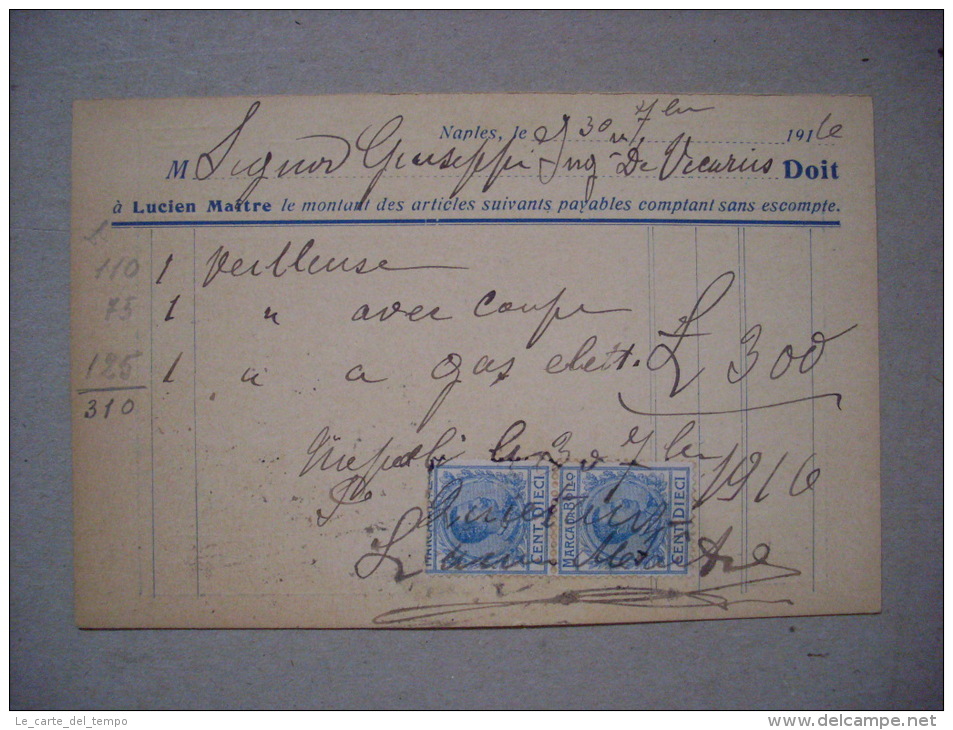 Naples, le 30 7bre 1916
M Signor Giuseppe Ing De Vicariis Doit
à Lucien Maître le montant des articles suivants payables comptant sans escompte.
110 1 Veilleuse
75 1 " avec coupe
125 1 " a gas elett. £ 300
310
Napoli le 30 7bre 1916
Pr Quietanza
MARCA DA BOLLO CENT. DIECI MARCA DA BOLLO CENT. DIECI
Lucien Maitre
Le_carte_del_tempo
www.delcampe.net